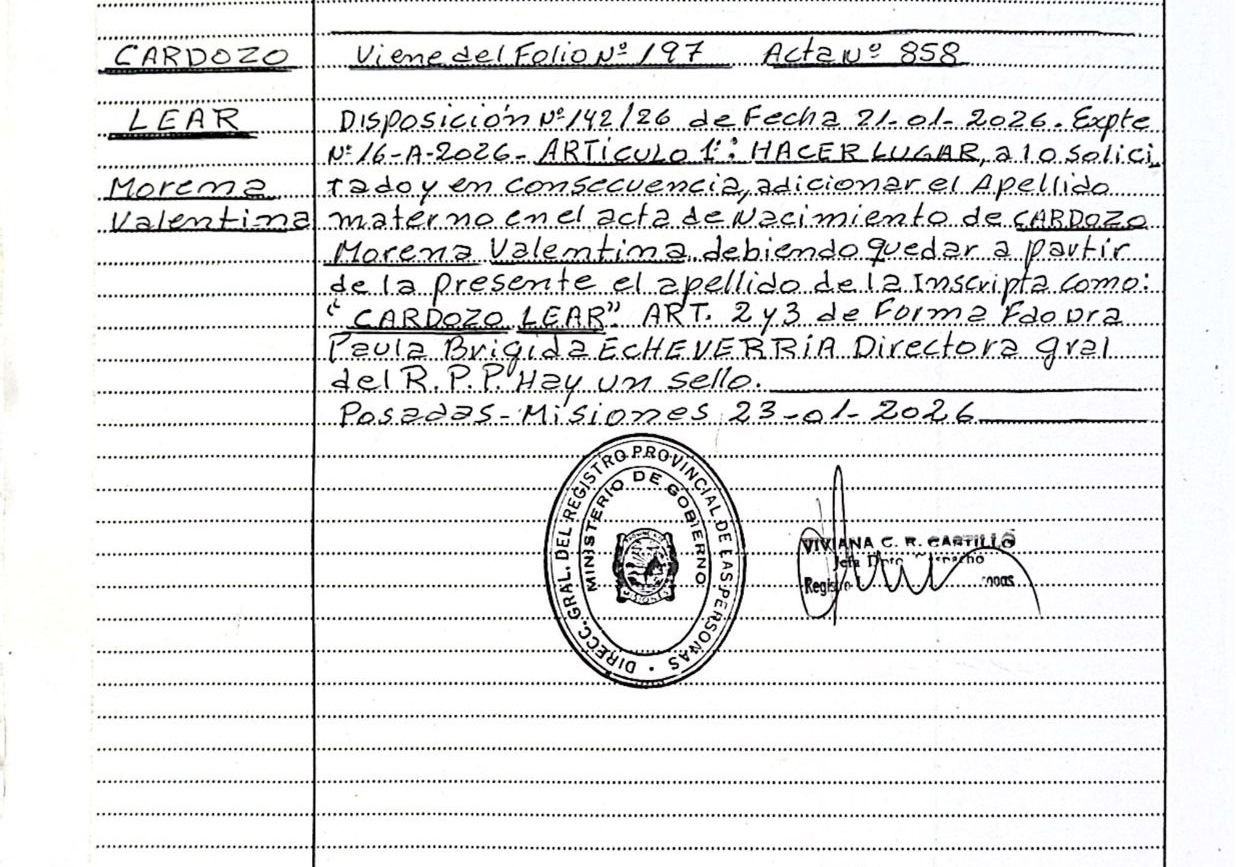 CARDOZO
LEAR
Morena
Valentina
Viene del Folio Nº 197 Acta Nº 858
Disposición Nº 142/26 de Fecha 21-01-2026. Expte
Nº 16-A-2026- ARTÍCULO 1º: HACER LUGAR, a lo solici
tado y en consecuencia, adicionar el Apellido
materno en el acta de Nacimiento de CARDOZO
Morena Valentina, debiendo quedar a partir
de la presente el apellido de la Inscripta como:
"CARDOZO LEAR". ART. 2 y 3 de Forma Fdo Dra
Paula Brigida ECHEVERRÍA Directora gral
del R.P.P. Hay un sello.
Posadas-Misiones 23-01-2026
DIRECC. GRAL. DEL REGISTRO PROVINCIAL DE LAS PERSONAS
MINISTERIO DE GOBIERNO
MISIONES
VIVIANA C. R. CASTILLO
Jefa Dpto